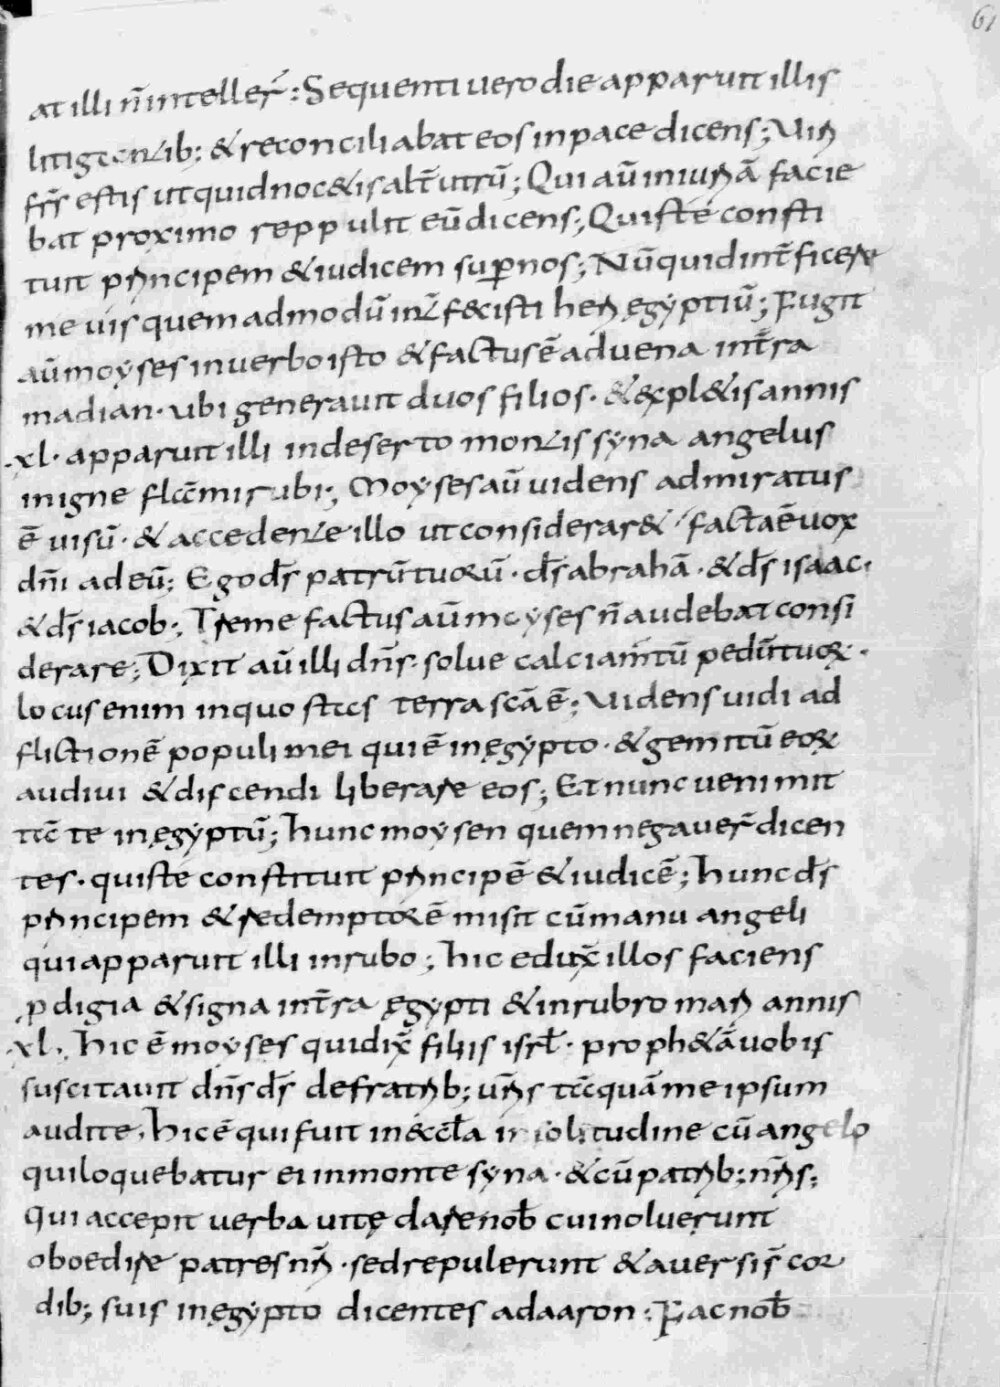 61
at illi n̄ intellex̄ : Sequenti uero die apparuit illis
litigantib; & reconciliabat eos in pace dicens; Uiri
fr̄s estis ut quid noc&is alt̄utrū; Qui aū iniuriā facie
bat proximo reppulit eū dicens; Quis te consti
tuit principem & iudicem super nos; Nūquid int̄ficere
me uis quemadmodū int̄fecisti heri ęgyptiū; Fugit
aū moyses in uerbo isto & factus ē aduena in t̄ra
madian · ubi generauit duos filios · & expl&is annis
·xl· apparuit illi in deserto montis syna angelus
in igne flāme rubi; Moyses aū uidens admiratus
ē uisū · & accedente illo ut considerar& / facta ē uox
dn̄i ad eū; Ego d̄s patrū tuorū · d̄s abrahā · & d̄s isaac ·
& d̄s iacob; Tremefactus aū moyses n̄ audebat consi
derare; Dixit aū illi dn̄s · solue calciam̄tū pedū tuoꝝ ·
locus enim in quo stas terra sc̄a ē; Uidens uidi ad
flictionē populi mei qui ē in ęgypto · & gemitū eoꝝ
audiui & discendi liberare eos; Et nunc ueni mit
tā te in ęgyptū; hunc moysen quem negauer̄ dicen
tes · quis te constituit principē & iudicē; hunc d̄s
principem & redemptorē misit cū manu angeli
qui apparuit illi in rubo; hic edux̄ illos faciens
ꝓdigia & signa in t̄ra ęgypti & in rubro mari annis
·xl· hic ē moyses qui dix̄ filiis isrł · proph&ā uobis
suscitauit dn̄s d̄s de fratrib; ur̄is tāquā me ipsum
audite · hic ē qui fuit in eccł̄a in solitudine cū angelo
qui loquebatur ei in monte syna · & cū patrib; nr̄is;
qui accepit uerba uitę dare nob̄ cui noluerunt
oboedire patres nr̄i · sed repulerunt & auersi s̄ cor
dib; suis in ęgypto dicentes ad aaron : Fac nob̄